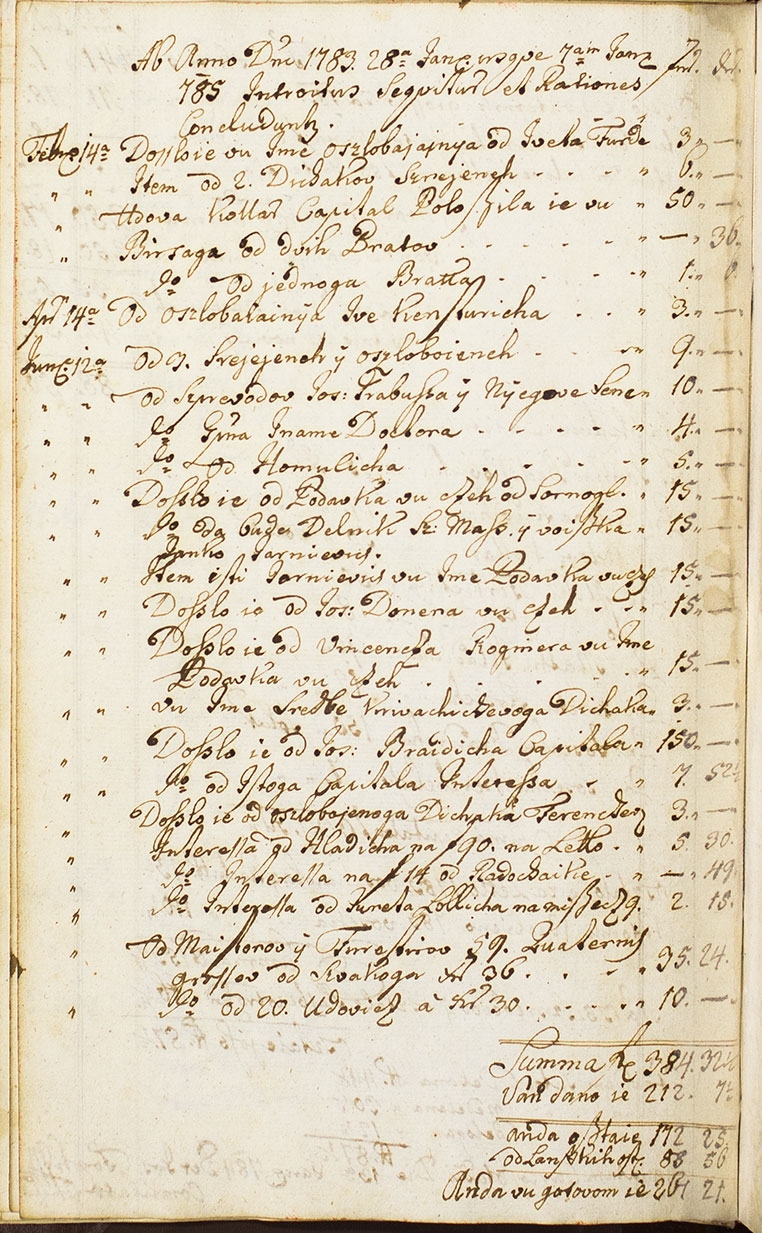 Ab Anno Dni 1783. 28ª Janr. usque 7ªm Janr frt. Xr.
785 Introitus Seqvitur et Rationes
Concluduntr.
Febr. 14ª Dosloie vu Ime oszlobajajnya od Iveka 3 „ —
„ „ Item od 2. Dichakov Szrejeneh - - - „ 6. „ —
„ Udova Kollar Capital Poloſila ie vu „ 50 „ —
„ Birsaga od dvih Bratov - - - - „ — „ 36.
do od jednoga Bratta - - - - „ 1. „
Apr 14ª Od oszlobaiainya Ive - - „ 3. „ —
Jun. 12ª od 3. Srejejeneh ÿ oszloboieneh - - - „ 9. „ —
„ „ od Szprevodov Jos: Trabussa ÿ Nyegove Sene „ 10 „ —
„ „ do Gſna Iname Doctora - - - - „ 4. „ —
„ „ do od Homulicha - - - - „ 5. „ —
„ „ Doſslo ie od Podavka vu Czeh od „ 15 „ —
„ „ do da bude Delnik Sz: Mass. ÿ voiſzka „ 15 „ —
Janko Jarnievits.
„ „ Item isti Jarnievits vu Ime Podavka vu 15 „ —
„ „ Doſslo ie od Jos: Donera vu Czeh - - „ 15 „ —
„ „ Doſslo ie od Vincencza Roginera vu Ime
Podavka vu Czeh - - - - „ 15 „ —
„ „ vu Ime Sretbe Krivachichevoga Dichaka „ 3. „ —
„ „ Doſslo ie od Jos: Braidicha Capitala „ 150 „ —
„ „ do od Istoga Capitala Interessa - - „ 7. 52½
„ Doſslo ie od oszlobojenoga Dichaka 3. „ —
„ Interessa od Hladicha na f 90. na Letto - „ 5. 30.
„ do Interessa na f 14 od - „ — „ 49
„ do Interessa od Jureta Lollicha na 9. 2. 15.
„ Od Maistorov ÿ 59.
grossev od Svakoga Xr 36 - - - „ 35. 24.
„ do od 20. Udovicz a Xr 30 - - - - „ 10. —
Summa 384. 32½
Van dano ie 212. 7½
anda oſztaie 172 25.
od
Anda vu gotovom ie 21.